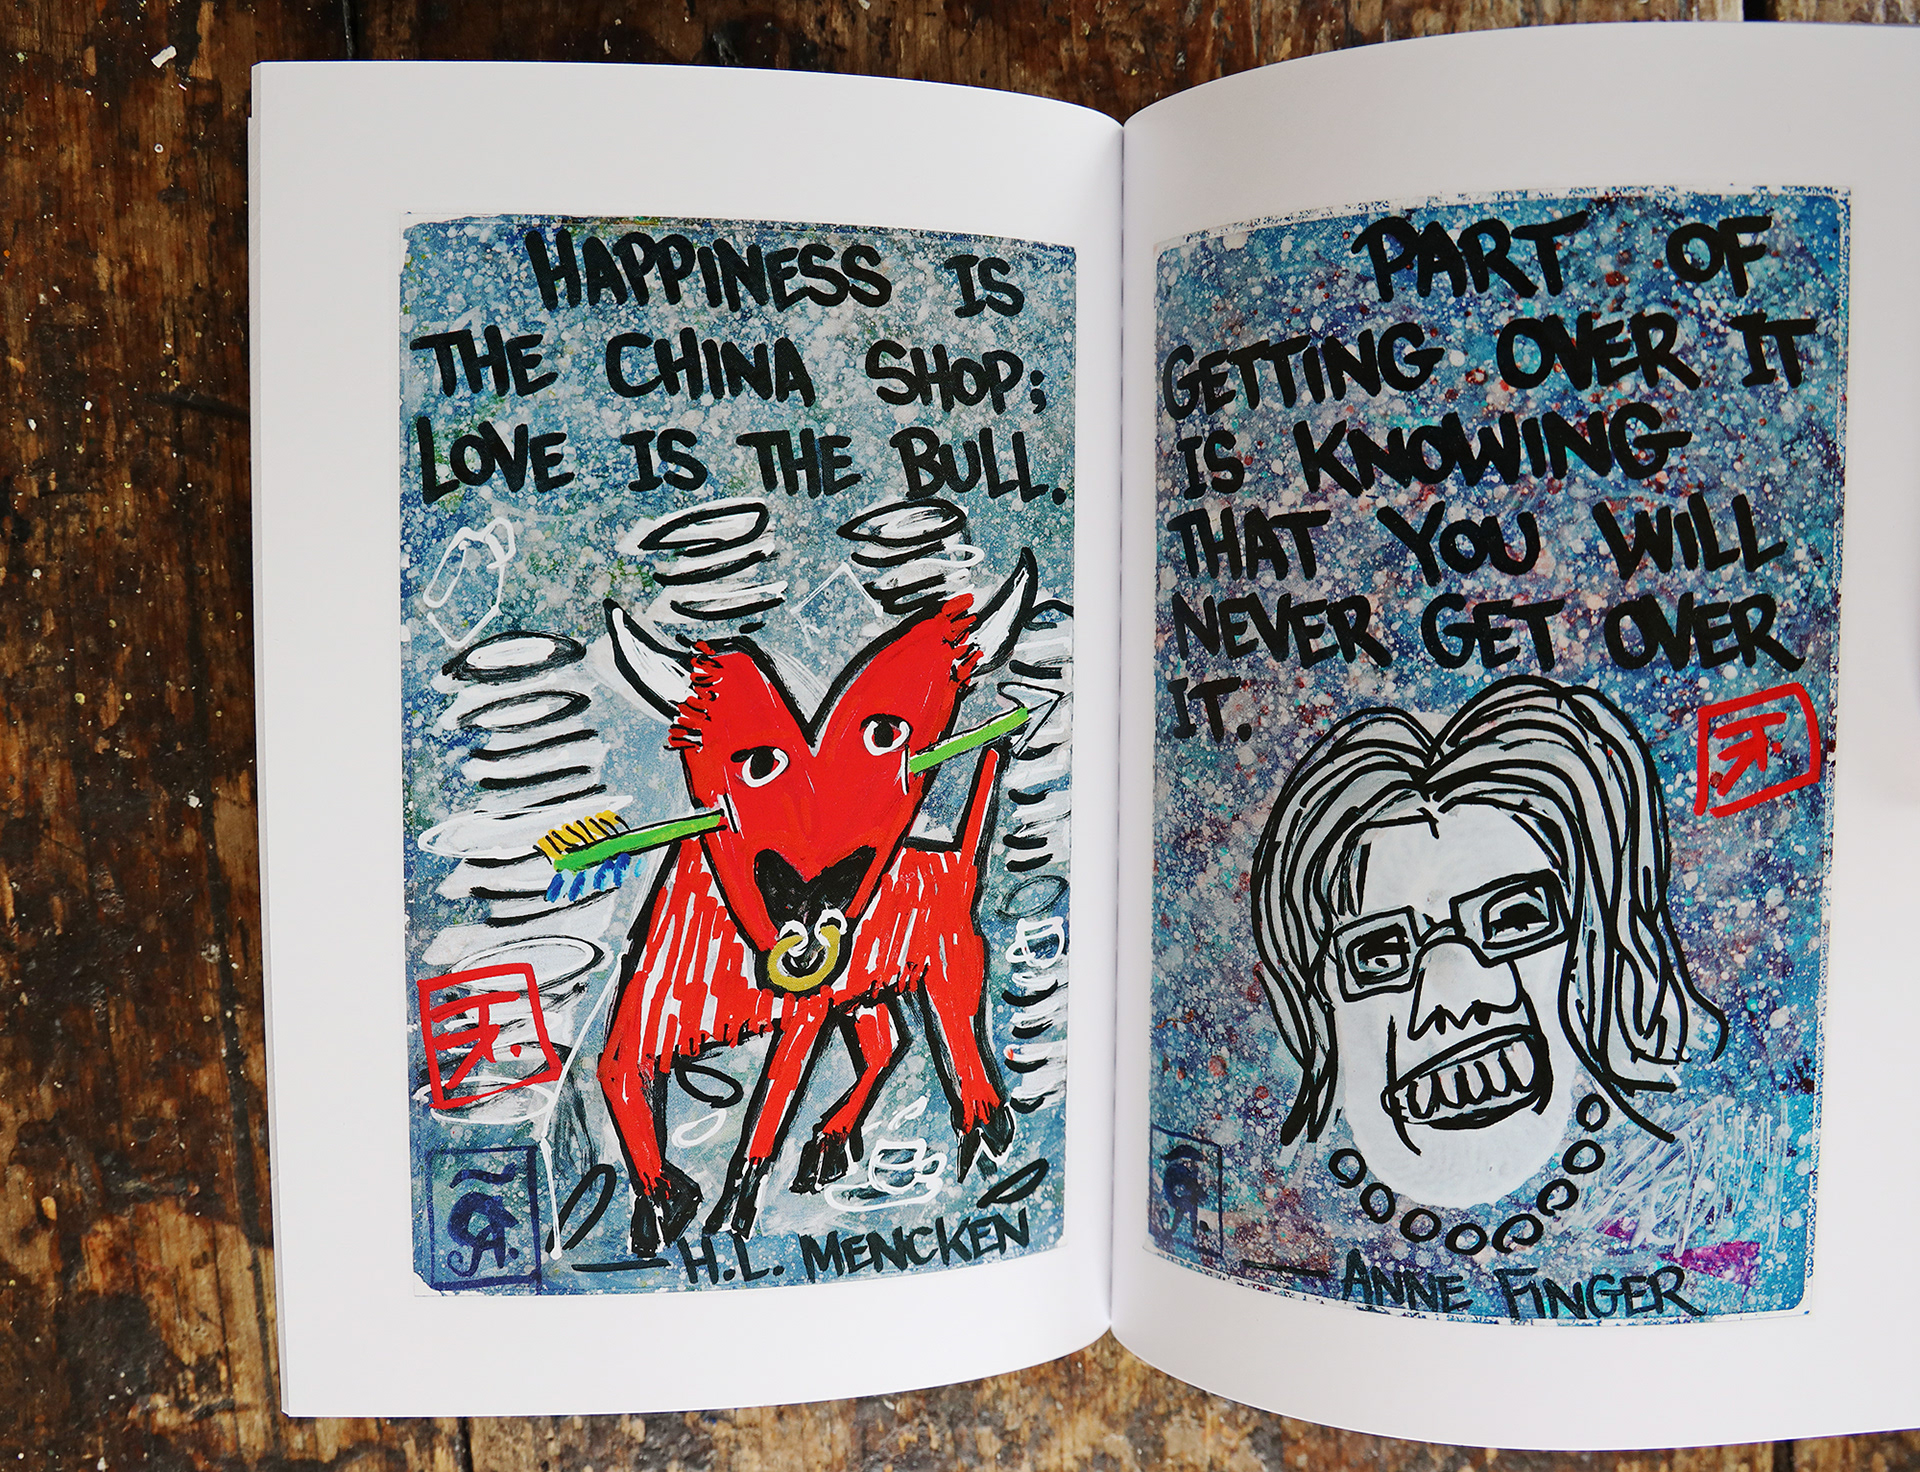 HAPPINESS IS
THE CHINA SHOP;
LOVE IS THE BULL.
— H.L. MENCKEN
PART OF
GETTING OVER IT
IS KNOWING
THAT YOU WILL
NEVER GET OVER
IT.
— ANNE FINGER